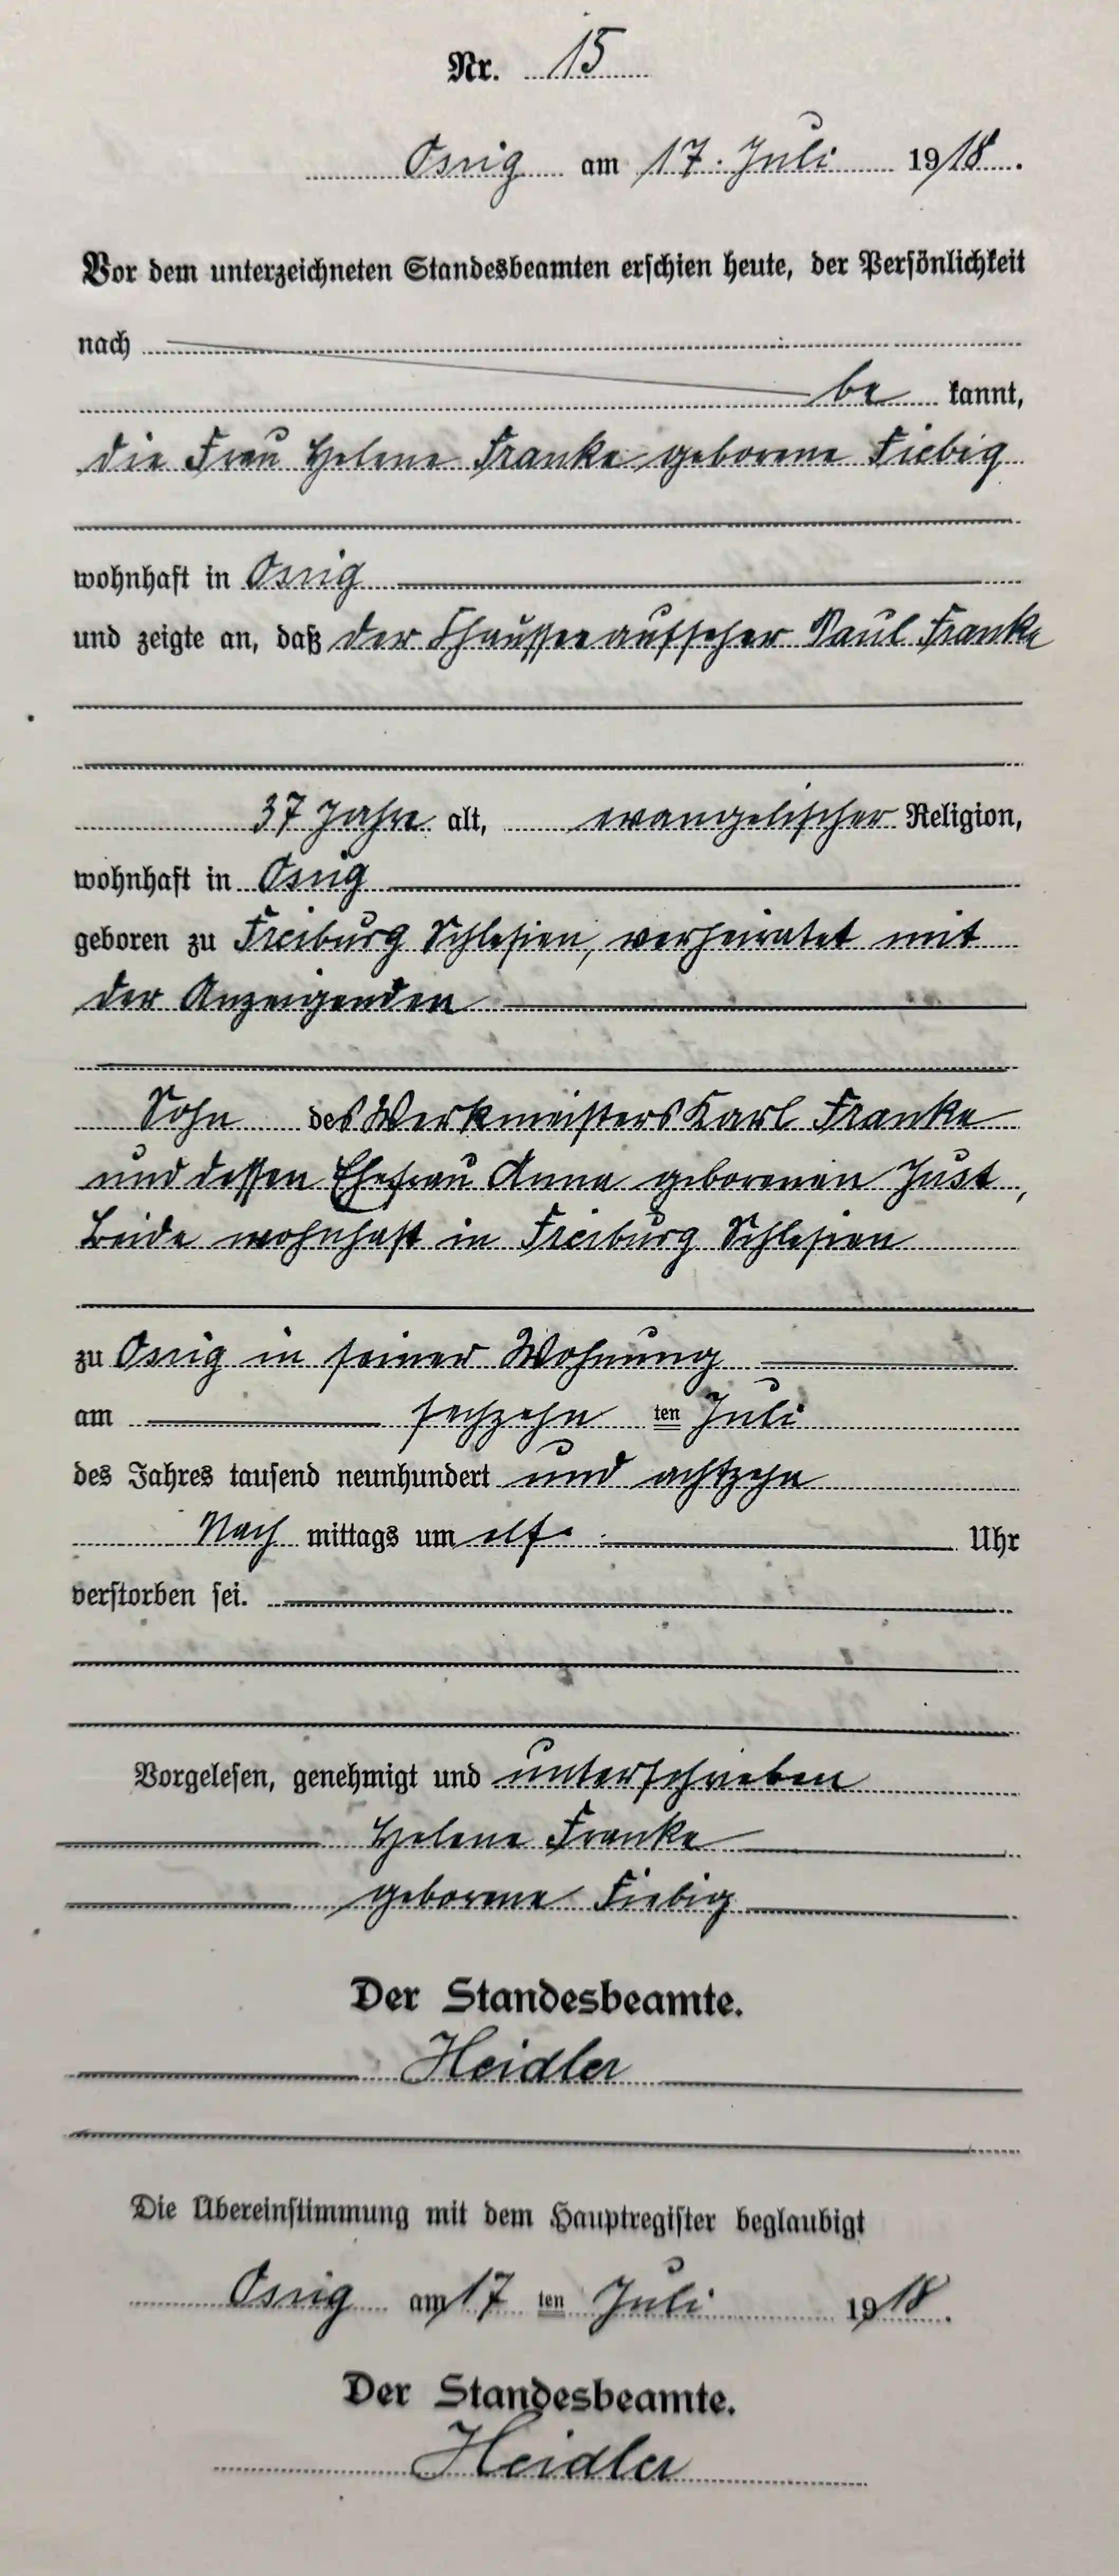 Nr. 15
Ossig am 17. Juli 1918.
Vor dem unterzeichneten Standesbeamten erschien heute, der Persönlichkeit
nach
be kannt,
die Frau Helene Franke geborene Fiebig
wohnhaft in Ossig
und zeigte an, daß der Chausseeaufseher Paul Franke
37 Jahre alt, evangelischer Religion,
wohnhaft in Ossig
geboren zu Freiburg Schlesien, verheiratet mit
der Anzeigenden
Sohn des Werkmeisters Karl Franke
und dessen Ehefrau Anna geborenen Just,
Beide wohnhaft in Freiburg Schlesien
zu Ossig in seiner Wohnung
am sechzehn ten Juli
des Jahres tausend neunhundert und achtzehn
Nach mittags um elf Uhr
verstorben sei.
Vorgelesen, genehmigt und unterschrieben
Helene Franke
geborene Fiebig
Der Standesbeamte.
Heidler
Die Übereinstimmung mit dem Hauptregister beglaubigt
Ossig am 17 ten Juli 1918.
Der Standesbeamte.
Heidler